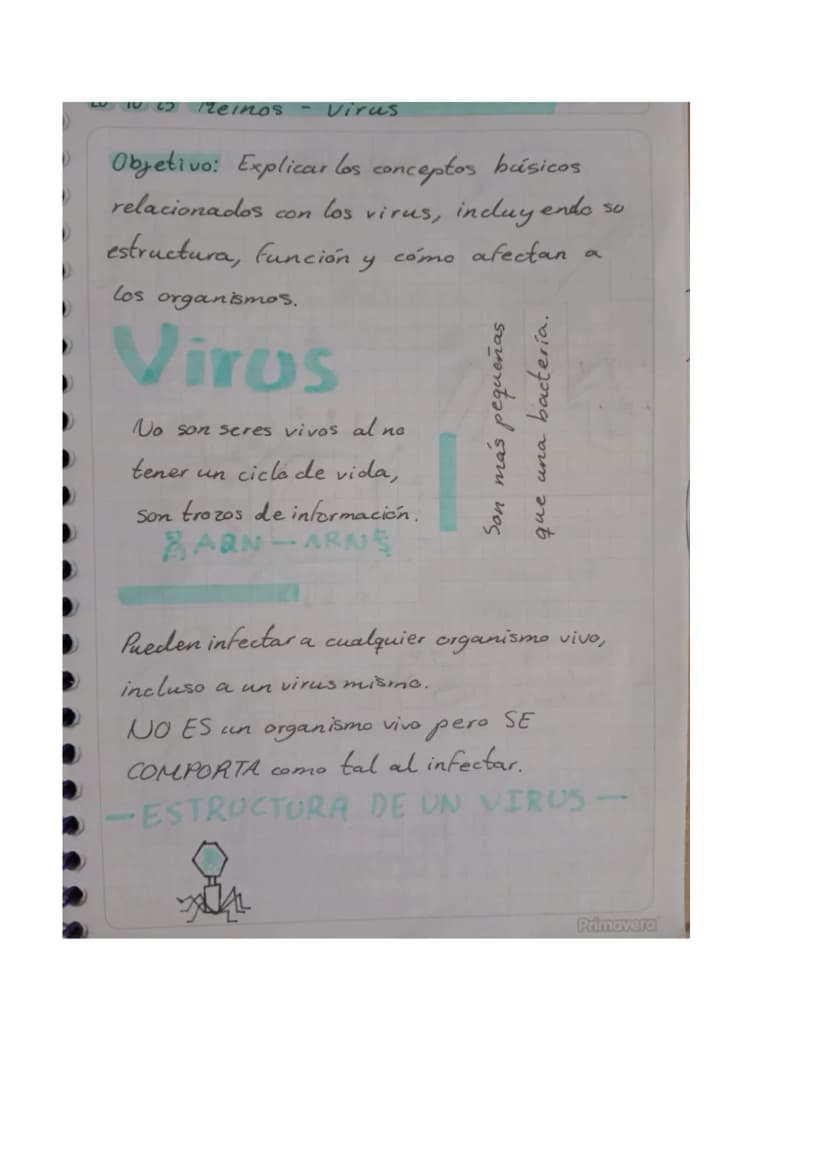 20 10 25 Reinos - Virus
Objetivo: Explicar los conceptos básicos
relacionados con los virus, incluyendo su
estructura, función y cómo afectan a
los organismos.
Virus
No son seres vivos al no
tener un ciclo de vida,
son trozos de información.
ADN - ARN
Son más pequeñas
que una bacteria.
Pueden infectar a cualquier organismo vivo,
incluso a un virus mismo.
NO ES un organismo vivo pero SE
COMPORTA como tal al infectar.
- ESTRUCTURA DE UN VIRUS -
Primavera